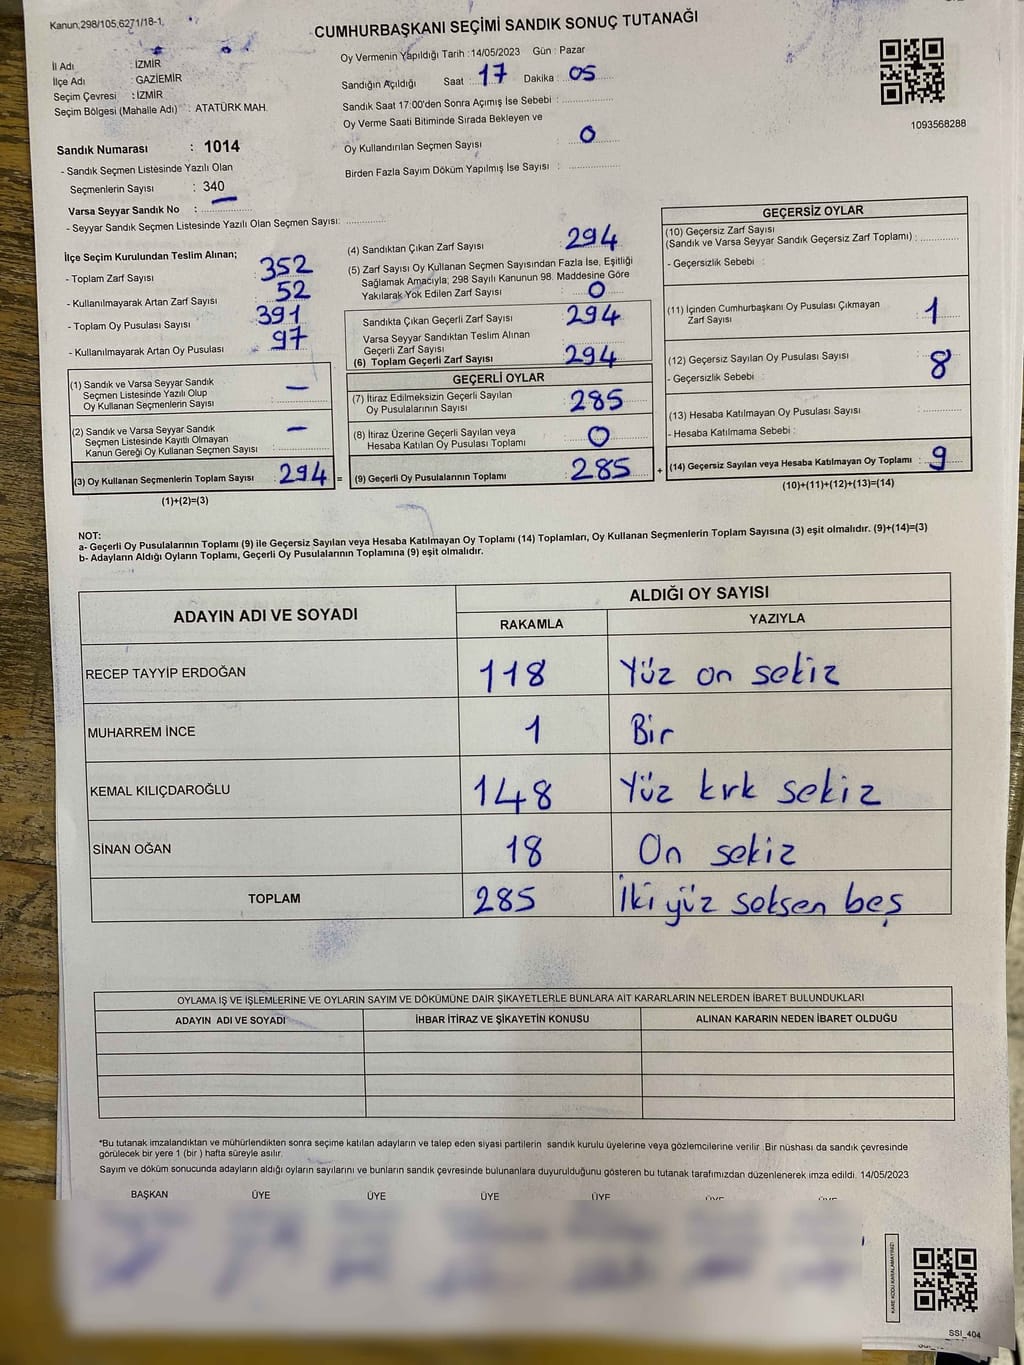 Kanun,298/105,6271/18-1,
CUMHURBAŞKANI SEÇİMİ SANDIK SONUÇ TUTANAĞI
İl Adı : İZMİR
İlçe Adı : GAZİEMİR
Seçim Çevresi : İZMİR
Seçim Bölgesi (Mahalle Adı) : ATATÜRK MAH.
Oy Vermenin Yapıldığı Tarih : 14/05/2023 Gün : Pazar
Sandığın Açıldığı Saat : 17 Dakika : 05
Sandık Saat 17:00'den Sonra Açımış İse Sebebi :
Oy Verme Saati Bitiminde Sırada Bekleyen ve
Oy Kullandırılan Seçmen Sayısı : 0
Birden Fazla Sayım Döküm Yapılmış İse Sayısı :
1093568288
Sandık Numarası : 1014
- Sandık Seçmen Listesinde Yazılı Olan
Seçmenlerin Sayısı : 340
Varsa Seyyar Sandık No : —
- Seyyar Sandık Seçmen Listesinde Yazılı Olan Seçmen Sayısı:
İlçe Seçim Kurulundan Teslim Alınan;
- Toplam Zarf Sayısı : 352
- Kullanılmayarak Artan Zarf Sayısı : 52
- Toplam Oy Pusulası Sayısı : 391
- Kullanılmayarak Artan Oy Pusulası : 97
(1) Sandık ve Varsa Seyyar Sandık
Seçmen Listesinde Yazılı Olup
Oy Kullanan Seçmenlerin Sayısı : —
(2) Sandık ve Varsa Seyyar Sandık
Seçmen Listesinde Kayıtlı Olmayan
Kanun Gereği Oy Kullanan Seçmen Sayısı : —
(3) Oy Kullanan Seçmenlerin Toplam Sayısı : 294 =
(1)+(2)=(3)
(4) Sandıktan Çıkan Zarf Sayısı : 294
(5) Zarf Sayısı Oy Kullanan Seçmen Sayısından Fazla İse, Eşitliği
Sağlamak Amacıyla, 298 Sayılı Kanunun 98. Maddesine Göre
Yakılarak Yok Edilen Zarf Sayısı : 0
Sandıkta Çıkan Geçerli Zarf Sayısı : 294
Varsa Seyyar Sandıktan Teslim Alınan
Geçerli Zarf Sayısı :
(6) Toplam Geçerli Zarf Sayısı : 294
GEÇERLİ OYLAR
(7) İtiraz Edilmeksizin Geçerli Sayılan
Oy Pusulalarının Sayısı : 285
(8) İtiraz Üzerine Geçerli Sayılan veya
Hesaba Katılan Oy Pusulası Toplamı : 0
(9) Geçerli Oy Pusulalarının Toplamı : 285 +
GEÇERSİZ OYLAR
(10) Geçersiz Zarf Sayısı
(Sandık ve Varsa Seyyar Sandık Geçersiz Zarf Toplamı) :
- Geçersizlik Sebebi :
(11) İçinden Cumhurbaşkanı Oy Pusulası Çıkmayan
Zarf Sayısı : 1
(12) Geçersiz Sayılan Oy Pusulası Sayısı : 8
- Geçersizlik Sebebi :
(13) Hesaba Katılmayan Oy Pusulası Sayısı :
- Hesaba Katılmama Sebebi :
(14) Geçersiz Sayılan veya Hesaba Katılmayan Oy Toplamı : 9
(10)+(11)+(12)+(13)=(14)
NOT:
a- Geçerli Oy Pusulalarının Toplamı (9) ile Geçersiz Sayılan veya Hesaba Katılmayan Oy Toplamı (14) Toplamları, Oy Kullanan Seçmenlerin Toplam Sayısına (3) eşit olmalıdır. (9)+(14)=(3)
b- Adayların Aldığı Oyların Toplamı, Geçerli Oy Pusulalarının Toplamına (9) eşit olmalıdır.
ADAYIN ADI VE SOYADI ALDIĞI OY SAYISI
RAKAMLA YAZIYLA
RECEP TAYYİP ERDOĞAN 118 Yüz on sekiz
MUHARREM İNCE 1 Bir
KEMAL KILIÇDAROĞLU 148 Yüz kırk sekiz
SİNAN OĞAN 18 On sekiz
TOPLAM 285 İki yüz seksen beş
OYLAMA İŞ VE İŞLEMLERİNE VE OYLARIN SAYIM VE DÖKÜMÜNE DAİR ŞİKAYETLERLE BUNLARA AİT KARARLARIN NELERDEN İBARET BULUNDUKLARI
ADAYIN ADI VE SOYADI İHBAR İTİRAZ VE ŞİKAYETİN KONUSU ALINAN KARARIN NEDEN İBARET OLDUĞU
*Bu tutanak imzalandıktan ve mühürlendikten sonra seçime katılan adayların ve talep eden siyasi partilerin sandık kurulu üyelerine veya gözlemcilerine verilir. Bir nüshası da sandık çevresinde
görülecek bir yere 1 (bir ) hafta süreyle asılır.
Sayım ve döküm sonucunda adayların aldığı oyların sayılarını ve bunların sandık çevresinde bulunanlara duyurulduğunu gösteren bu tutanak tarafımızdan düzenlenerek imza edildi. 14/05/2023
BAŞKAN ÜYE ÜYE ÜYE ÜYE ÜYE ÜYE
KARE KODU KARALAMAYINIZ!
SSI_404